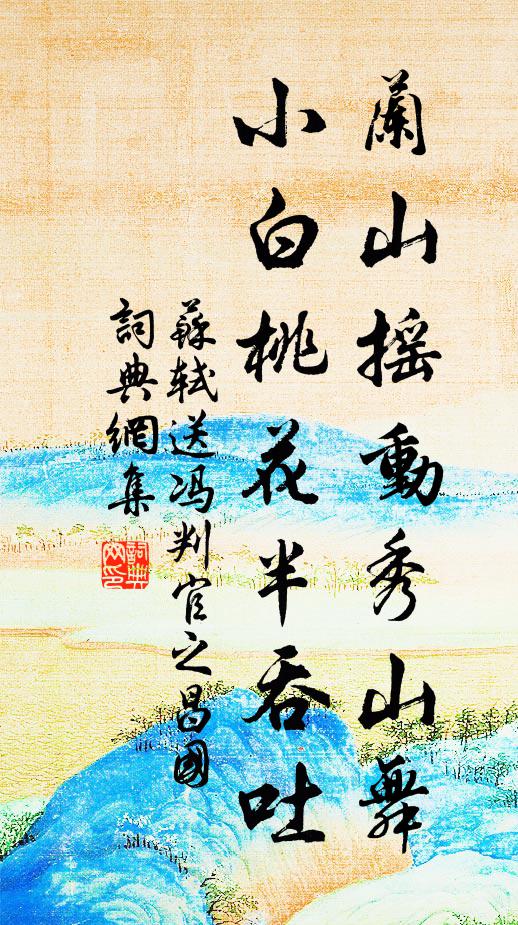 蘭山摇動秀山舞
小白桃花半吞吐
蘇軾送冯判官之昌國
詞典網集
詞典网印